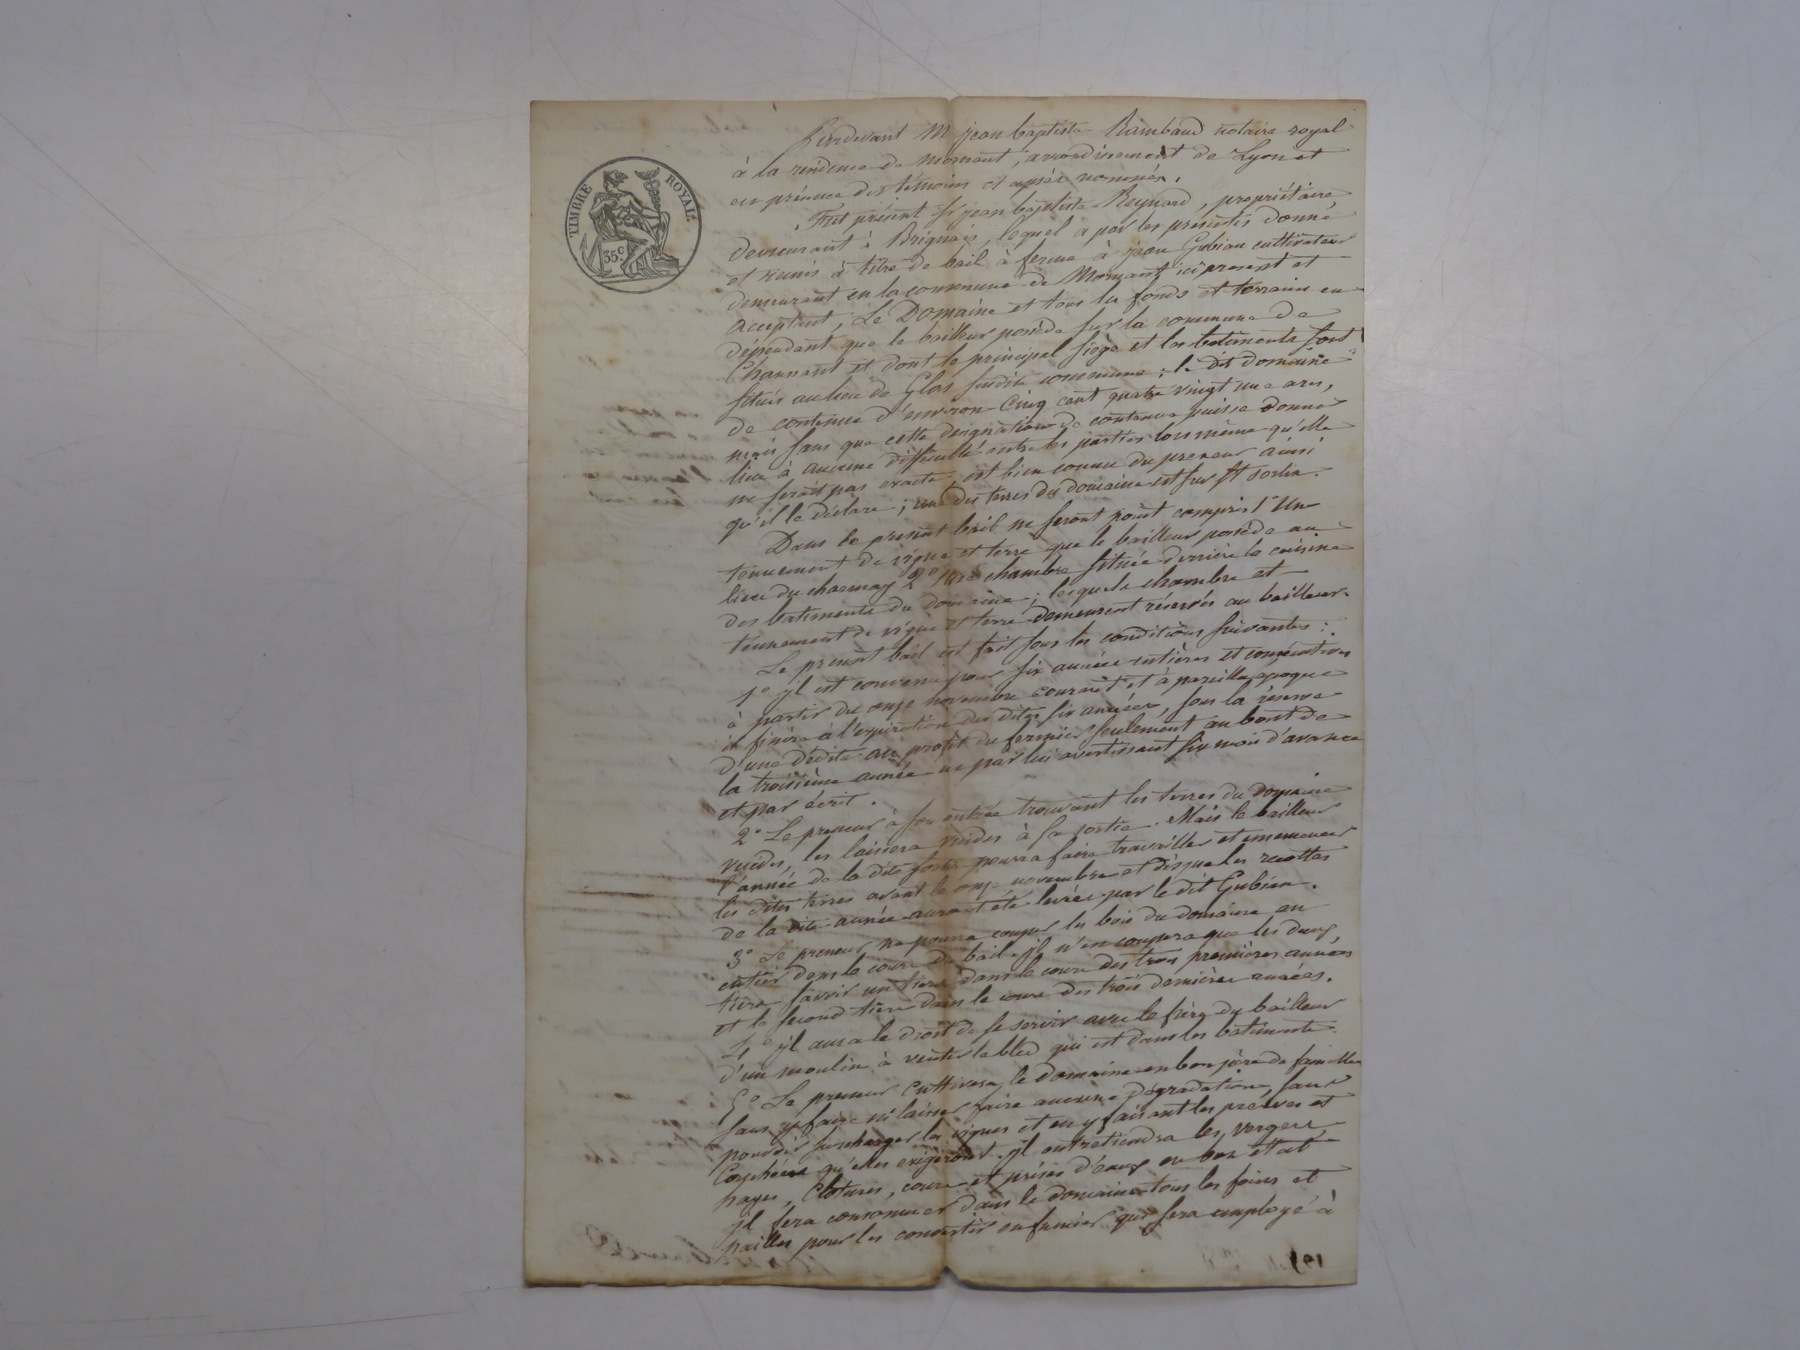 TIMBRE ROYAL.
35 C
Pardevant Me jean baptiste Rambaud notaire royal
à la residence de Mornant, arrondissement de Lyon et
en présence des témoins ci après nommés.
Fut présent Sr jean baptiste Reynard, propriétaire
demeurant à Brignais, lequel a par les presentes donné
et remis à titre de bail à ferme à jean Gubian cultivateur
demeurant en la commune de Mornant ici present et
acceptant, Le Domaine et tous les fonds et terrains en
dépendant que le bailleur posséde sur la commune de
Chaussant et dont le principal siège et les batiments sont
situés au lieu de Glas susdite commune ; le dit domaine
de contenue d'environ Cinq cent quatre vingt une ares,
mais sans que cette designation de contenue puisse donner
lieu à aucune difficulté entre les parties lors même qu'elle
ne serait pas exacte, est bien connue du preneur ainsi
qu'il le déclare ; une des terres du domaine est sur St sorlin.
Dans le présent bail ne seront point compris 1° Un
tennement de vigne et terre que le bailleur posséde au
lieu du charmay 2° une chambre située derrière la cuisine
des batiments du domaine ; lesquels chambre et
tennement de vigne et terre demeurent réservés au bailleur.
Le present bail est fait sous les conditions suivantes :
1° jl est convenu pour six années entières et consécutives
à partir du onze novembre courant et à pareille époque
il finira à l'expiration des dites six années, sous la réserve
d'une dédite au profit du fermier seulement au bout de
la troisième année en par lui avertissant six mois d'avance
et par écrit.
2° Le preneur à son entrée trouvant les terres du domaine
vuides, les laissera vuides à sa sortie. Mais le bailleur
l'année de la dite sortie pourra faire travailler et ensemencer
les dites terres avant le onze novembre et dès que les recoltes
de la dite année auront été levées par le dit Gubian.
3° Le preneur ne pourra couper les bois du domaine en
entier dans le cours du bail. jl n'en coupera que les deux
tiers savoir un tiers dans le cours des trois premières années
et le second tiers dans le cours des trois dernières années.
4° jl aura le droit de se servir avec le frère du bailleur
d'un moulin à venter le bled qui est dans les batiments.
5° Le preneur cultivera le domaine en bon père de famille
sans y faire ni laisser faire aucune dégradation, sans
pouvoir surcharger les vignes et en y faisant les preuves et
couchées qu'elles exigeront. jl entretiendra les vergers
hayes, Clotures, cours et prises d'eaux en bon état
jl fera consommer dans le domaine tous les foins et
pailles pour les convertir en fumier qui sera employé à